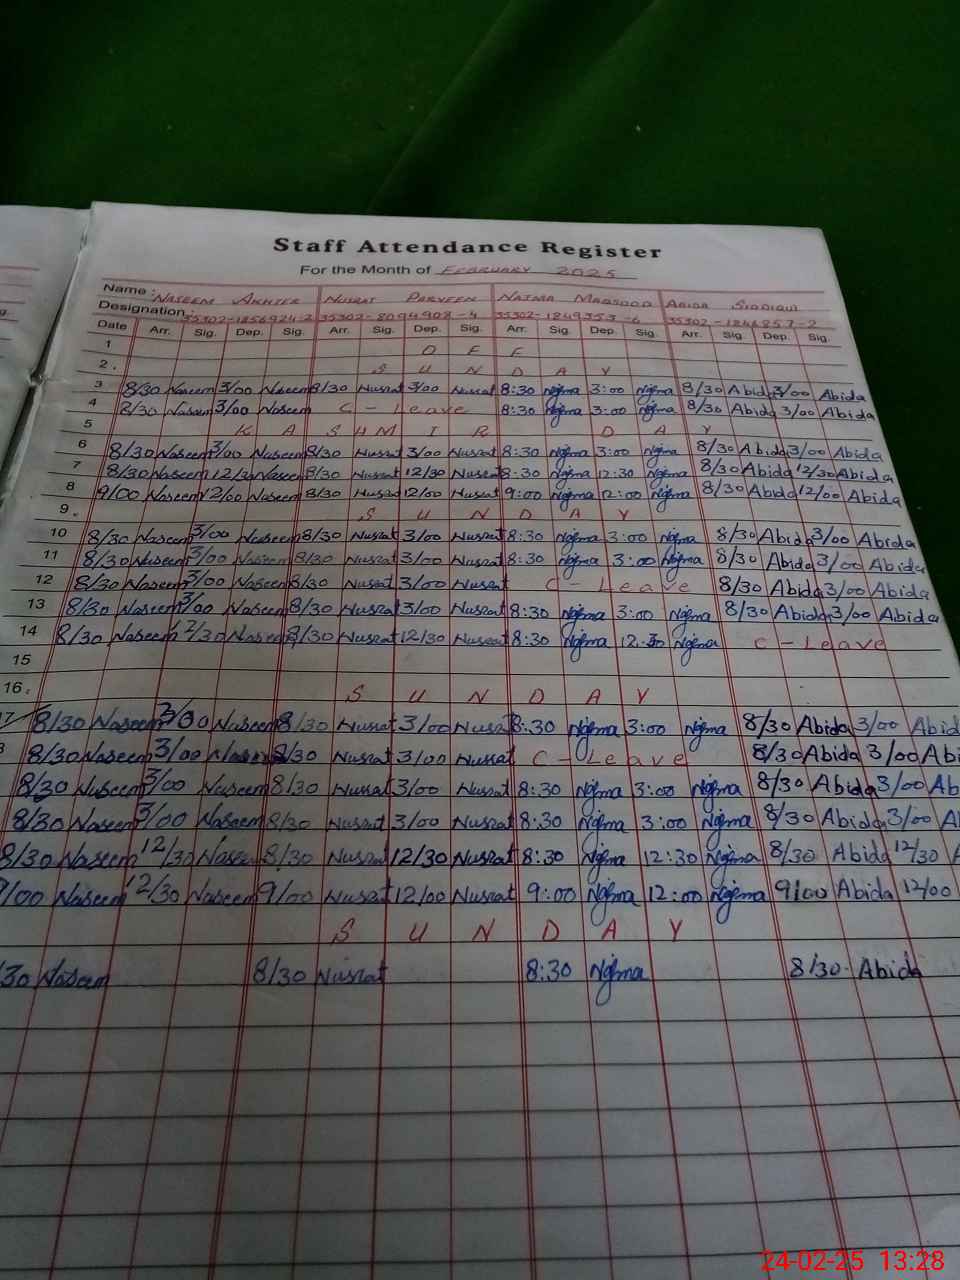 Staff Attendance Register
For the Month of FEBRUARY 2025
Name: NASEEM AKHTER NUSRAT PARVEEN NAJMA MAQSOOD ABIDA SIDDIQUI
Designation: 35302-1856924-2 35302-8094908-4 35302-1849353-6 35302-1846857-2
Date Arr. Sig. Dep. Sig. Arr. Sig. Dep. Sig. Arr. Sig. Dep. Sig. Arr. Sig. Dep. Sig.
1 OFF
2. SUNDAY
3 8/30 Naseem 3/00 Naseem 8/30 Nusrat 3/00 Nusrat 8:30 Najma 3:00 Najma 8/30 Abida 3/00 Abida
4 8/30 Naseem 3/00 Naseem C-Leave 8:30 Najma 3:00 Najma 8/30 Abida 3/00 Abida
5 KASHMIR DAY
6 8/30 Naseem 3/00 Naseem 8/30 Nusrat 3/00 Nusrat 8:30 Najma 3:00 Najma 8/30 Abida 3/00 Abida
7 8/30 Naseem 12/30 Naseem 8/30 Nusrat 12/30 Nusrat 8:30 Najma 12:30 Najma 8/30 Abida 12/30 Abida
8 9/00 Naseem 12/00 Naseem 8/30 Nusrat 12/00 Nusrat 9:00 Najma 12:00 Najma 8/30 Abida 12/00 Abida
9. SUNDAY
10 8/30 Naseem 3/00 Naseem 8/30 Nusrat 3/00 Nusrat 8:30 Najma 3:00 Najma 8/30 Abida 3/00 Abida
11 8/30 Naseem 3/00 Naseem 8/30 Nusrat 3/00 Nusrat 8:30 Najma 3:00 Najma 8/30 Abida 3/00 Abida
12 8/30 Naseem 3/00 Naseem 8/30 Nusrat 3/00 Nusrat C-Leave 8/30 Abida 3/00 Abida
13 8/30 Naseem 3/00 Naseem 8/30 Nusrat 3/00 Nusrat 8:30 Najma 3:00 Najma 8/30 Abida 3/00 Abida
14 8/30 Naseem 12/30 Naseem 8/30 Nusrat 12/30 Nusrat 8:30 Najma 12:30 Najma C-Leave
15
16. SUNDAY
7 8/30 Naseem 3/00 Naseem 8/30 Nusrat 3/00 Nusrat 8:30 Najma 3:00 Najma 8/30 Abida 3/00 Abid
8 8/30 Naseem 3/00 Naseem 8/30 Nusrat 3/00 Nusrat C-Leave 8/30 Abida 3/00 Abi
8/30 Naseem 3/00 Naseem 8/30 Nusrat 3/00 Nusrat 8:30 Najma 3:00 Najma 8/30 Abida 3/00 Ab
8/30 Naseem 3/00 Naseem 8/30 Nusrat 3/00 Nusrat 8:30 Najma 3:00 Najma 8/30 Abida 3/00 A
8/30 Naseem 12/30 Naseem 8/30 Nusrat 12/30 Nusrat 8:30 Najma 12:30 Najma 8/30 Abida 12/30 A
9/00 Naseem 12/30 Naseem 9/00 Nusrat 12/00 Nusrat 9:00 Najma 12:00 Najma 9/00 Abida 12/00
SUNDAY
/30 Naseem 8/30 Nusrat 8:30 Najma 8/30 Abida
24-02-25 13:28